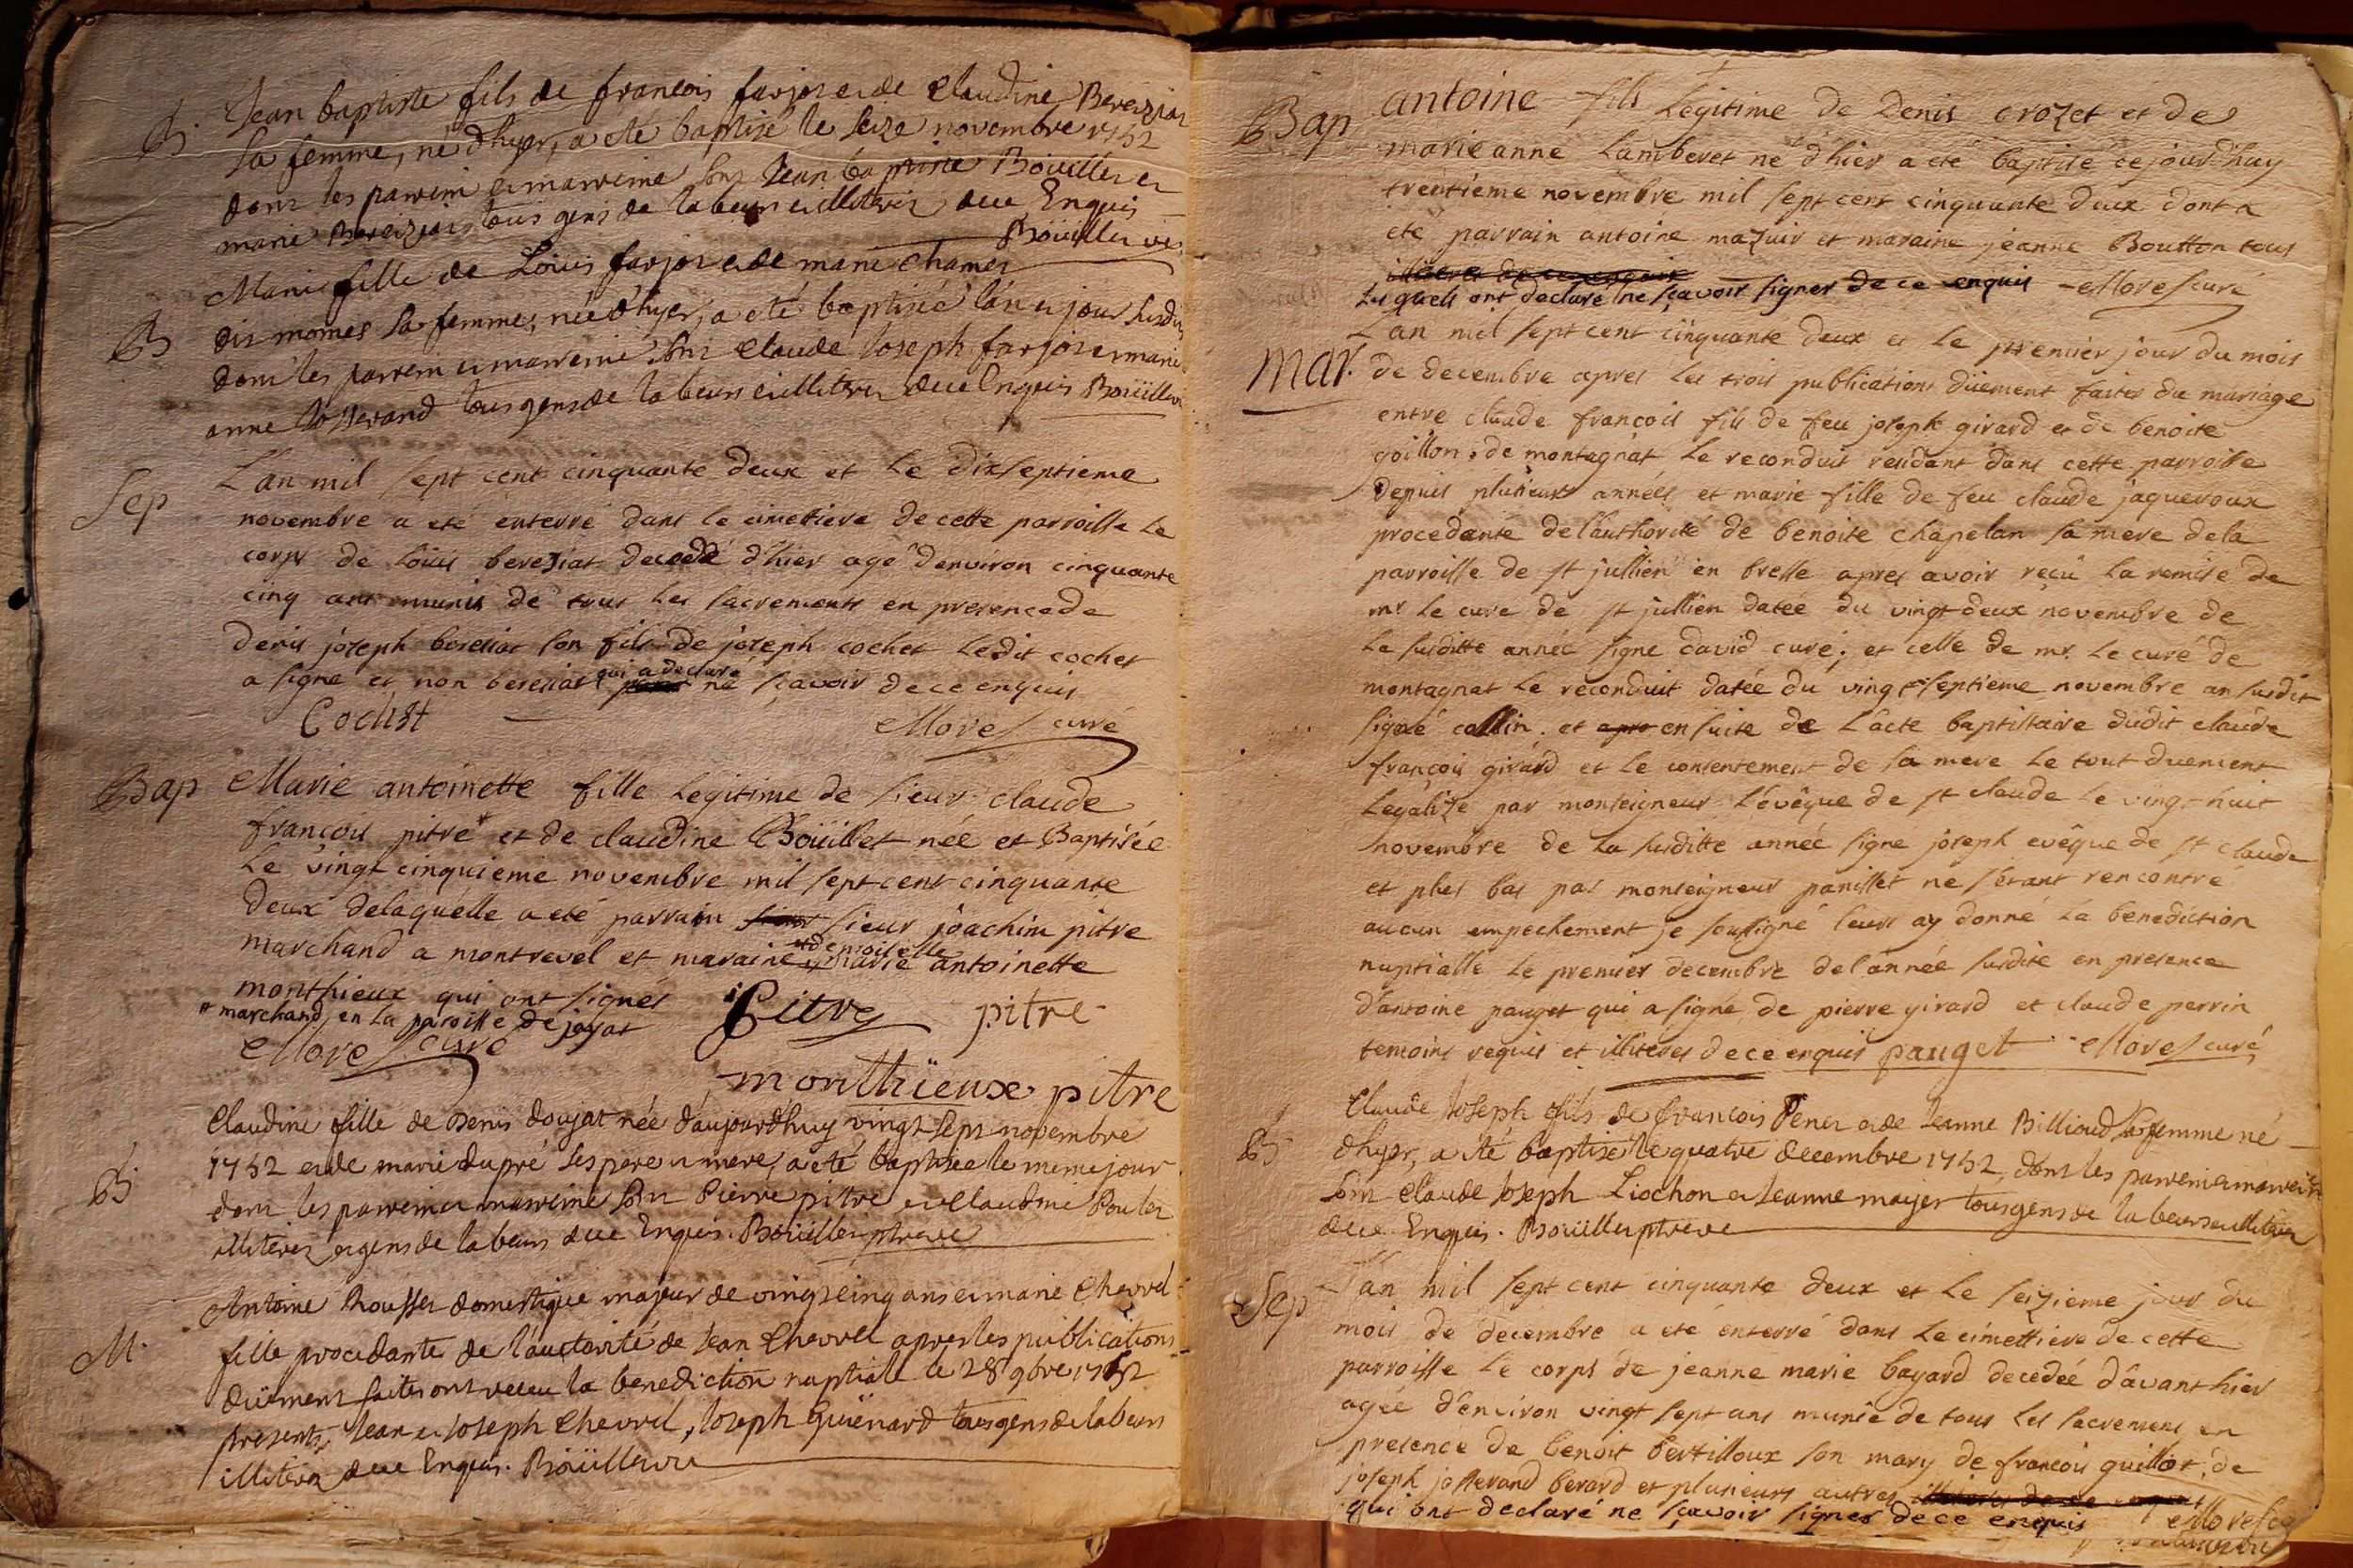 B. Jean baptiste fils de francois farjot et de Claudine Bereiziat
sa femme, né d'hyer, a eté baptisé le seize novembre 1752
dont les parrein et marreine sont Jean baptiste Boüillet et
marie Bereiziat tous gens de labeur et illiteres de ce Enquis
Boüillet vic.
Marie fille de Loüis farjot et de marie
B dis moines sa femme, née d'hyer, a eté baptisée l'an et jour susdits
dont les parrein et marreine sont Claude Joseph farjot et marie
anne Josserand tous gens de labeur et illiteres de ce Enquis Boüillet
Sep L'an mil sept cent cinquante deux et le dixseptieme
novembre a eté enterré dans le cimettiere de cette parroisse le
corps de loüis bereziat decedé d'hier agé d'environ cinquante
cinq ans munis de tous les sacrements en presence de
denis joseph beresiat son fils de joseph cochet ledit cochet
a signé et non beresiat qui a declaré ne sçavoir de ce enquis
Cochet Morel curé
Bap Marie antoinette fille legitime de sieur claude
françois pitre* et de claudine Boüillet née et Baptisée
le vingt cinquieme novembre mil sept cent cinquante
deux delaquelle a eté parrain sieur joachim pitre
marchand a montrevel et maraine demoiselle marie antoinette
monthieux qui ont signés Pitre pitre
* marchand en la paroisse de jayat
Morel curé
monthïeux pitre
Claudine fille de Denis doujat née d'aujourd'huy vingt sept novembre
B 1752 et de marie dupré ses pere et mere, a eté baptisée le meme jour
dont les parrein et marreine sont Pierre pitre et Claudine Poulet
illiteres et gens de labeur de ce Enquis. Boüillet ptre vic
M. Antoine Rousset domestique majeur de vingt cinq ans et marie Chevrel
fille procedante de l'auctorité de Jean Chevrel apres les publications
düement faites ont receu la benediction nuptiale le 28 9bre 1752
presents, Jean et Joseph Chevrel, Joseph Guienard tous gens de labeur
illiteres de ce Enquis. Boüillet vic
Bap antoine fils Legitime de Denis crozet et de
marie anne Lamberet né d'hier a eté baptisé ce jourd'huy
trentieme novembre mil sept cent cinquante deux dont a
eté parrain antoine mazuir et maraine jeanne Boutton tous
illiteres de ce enquis
lesquels ont declaré ne sçavoir signer de ce enquis Morel curé
Mar. L'an mil sept cent cinquante deux et le premier jour du mois
de decembre apres les trois publications düement faites du mariage
entre claude françois fils de feu joseph girard et de benoite
goillon, de montagnat le reconduit residant dans cette parroisse
depuis plusieurs années et marie fille de feu claude jaqueroux
procedante de l'authorité de benoite chapelan sa mere de la
parroisse de st jullien en bresse apres avoir reçu la remise de
mr le curé de st jullien datée du vingt deux novembre de
la susditte année signé david curé; et celle de mr. le curé de
montagnat le reconduit datée du vingt septieme novembre an susdit
signé collin. et apre ensuite de l'acte baptistaire dudit claude
françois girard et le consentement de sa mere le tout duement
legalizé par monseigneur l'evêque de st claude le vingt huit
novembre de la susditte année signé joseph evêque de st claude
et plus bas par monseigneur panisset ne s'etant rencontré
aucun empechement je soussigné leurs ay donné la benediction
nuptialle le premier decembre de l'année susdite en presence
d'antoine pauget qui a signé de pierre girard et claude perrin
temoins requis et illiteres de ce enquis pauget Morel curé
Claude Joseph fils de francois Penet et de Jeanne Billioud sa femme né
B d'hyer, a eté baptisé le quatre decembre 1752, dont les parrein et marreine
sont Claude Joseph Liochon et Jeanne mayer tous gens de labeur et illiteres
de ce Enquis. Boüillet ptre vic
Sep L'an mil sept cent cinquante deux et le seizieme jour du
mois de decembre a eté enterré dans le cimettiere de cette
parroisse le corps de jeanne marie bayard decedée d'avant hier
agée d'environ vingt sept ans munie de tous les sacrements en
presence de benoit bertilloux son mary de francois guillot, de
joseph josserand berard et plusieurs autres illiteres de ce enquis
qui ont declaré ne sçavoir signer de ce enquis Morel curé